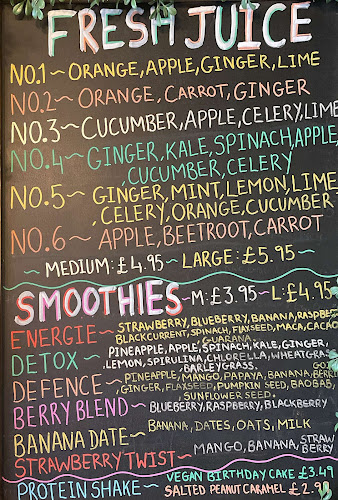 FRESH JUICE
NO.1~ORANGE,APPLE,GINGER,LIME
NO.2~ORANGE,CARROT,GINGER
NO.3~CUCUMBER,APPLE,CELERY,LIME
NO.4~GINGER,KALE,SPINACH,APPLE
,CUCUMBER,CELERY
NO.5~GINGER,MINT,LEMON,LIME
,CELERY,ORANGE,CUCUMBER
NO.6~APPLE,BEETROOT,CARROT
~MEDIUM:£4.95~LARGE:£5.95~
SMOOTHIES~M:£3.95~L:£4.95
ENERGIE~STRAWBERRY,BLUEBERRY,BANANA,RASPBE
BLACKCURRENT,SPINACH,FLAXSEED,MACA,CACAO
GUARANA.
DETOX~PINEAPPLE,APPLE,SPINACH,KALE,GINGER,
LEMON,SPIRULINA,CHLORELLA,WHEATGRA
BARLEYGRASS.
DEFENCE~PINEAPPLE,MANGO,PAPAYA,BANANA,
GINGER,FLAXSEED,PUMPKIN SEED,BAOBAB,
SUNFLOWER SEED.
BERRY BLEND~BLUEBERRY,RASPBERRY,BLACKBERRY
BANANA DATE~BANANA,DATES,OATS,MILK
STRAWBERRY TWIST~MANGO,BANANA,STRAW
BERRY
PROTEIN SHAKE~VEGAN BIRTHDAY CAKE £3.49
SALTED PEANUT CARAMEL £2.98